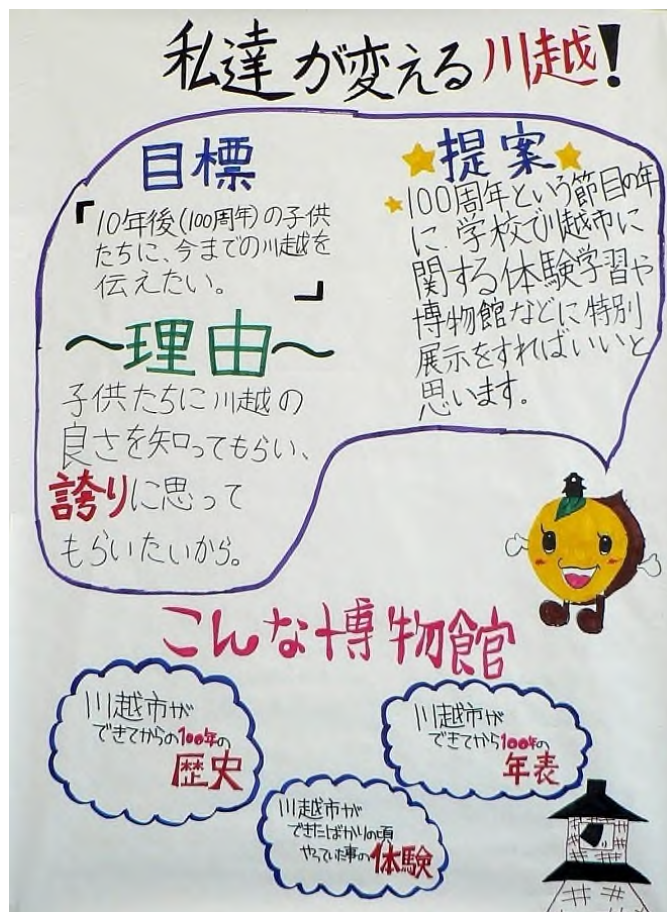 私達が変える川越！
目標
「10年後(100周年)の子供
たちに、今までの川越を
伝えたい。」
〜理由〜
子供たちに川越の
良さを知ってもらい、
誇りに思って
もらいたいから。
提案
100周年という節目の年
に、学校で川越市に
関する体験学習や
博物館などに特別
展示をすればいいと
思います。
こんな博物館
川越市が
できてからの100年の
歴史
川越市が
できてから100年の
年表
川越市が
できたばかりの頃
やっていた事の体験